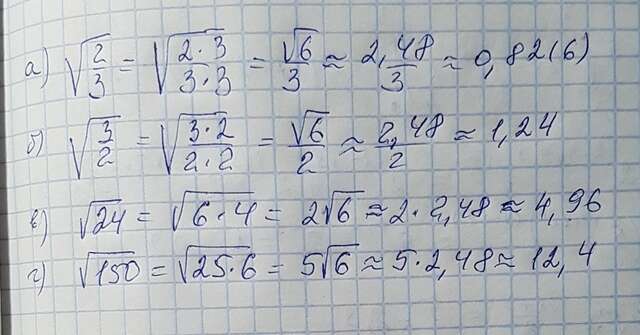 а) √(2/3) = √((2·3)/(3·3)) = √6/3 ≈ 2,48/3 ≈ 0,82(6)
б) √(3/2) = √((3·2)/(2·2)) = √6/2 ≈ 2,48/2 ≈ 1,24
в) √24 = √(6·4) = 2√6 ≈ 2·2,48 ≈ 4,96
г) √150 = √(25·6) = 5√6 ≈ 5·2,48 ≈ 12,4